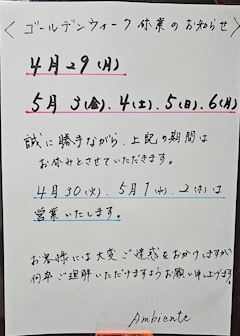 〈 ゴールデンウィーク休業のお知らせ 〉
4月29(月)
5月 3(金).4(土).5(日).6(月)
誠に勝手ながら、上記の期間は
お休みとさせていただきます。
4月30(火)、5月1(水)、2(木)は
営業いたします。
お客様には大変ご迷惑をおかけしますが
何卒ご理解いただけますようお願い申し上げます。
Ambiente